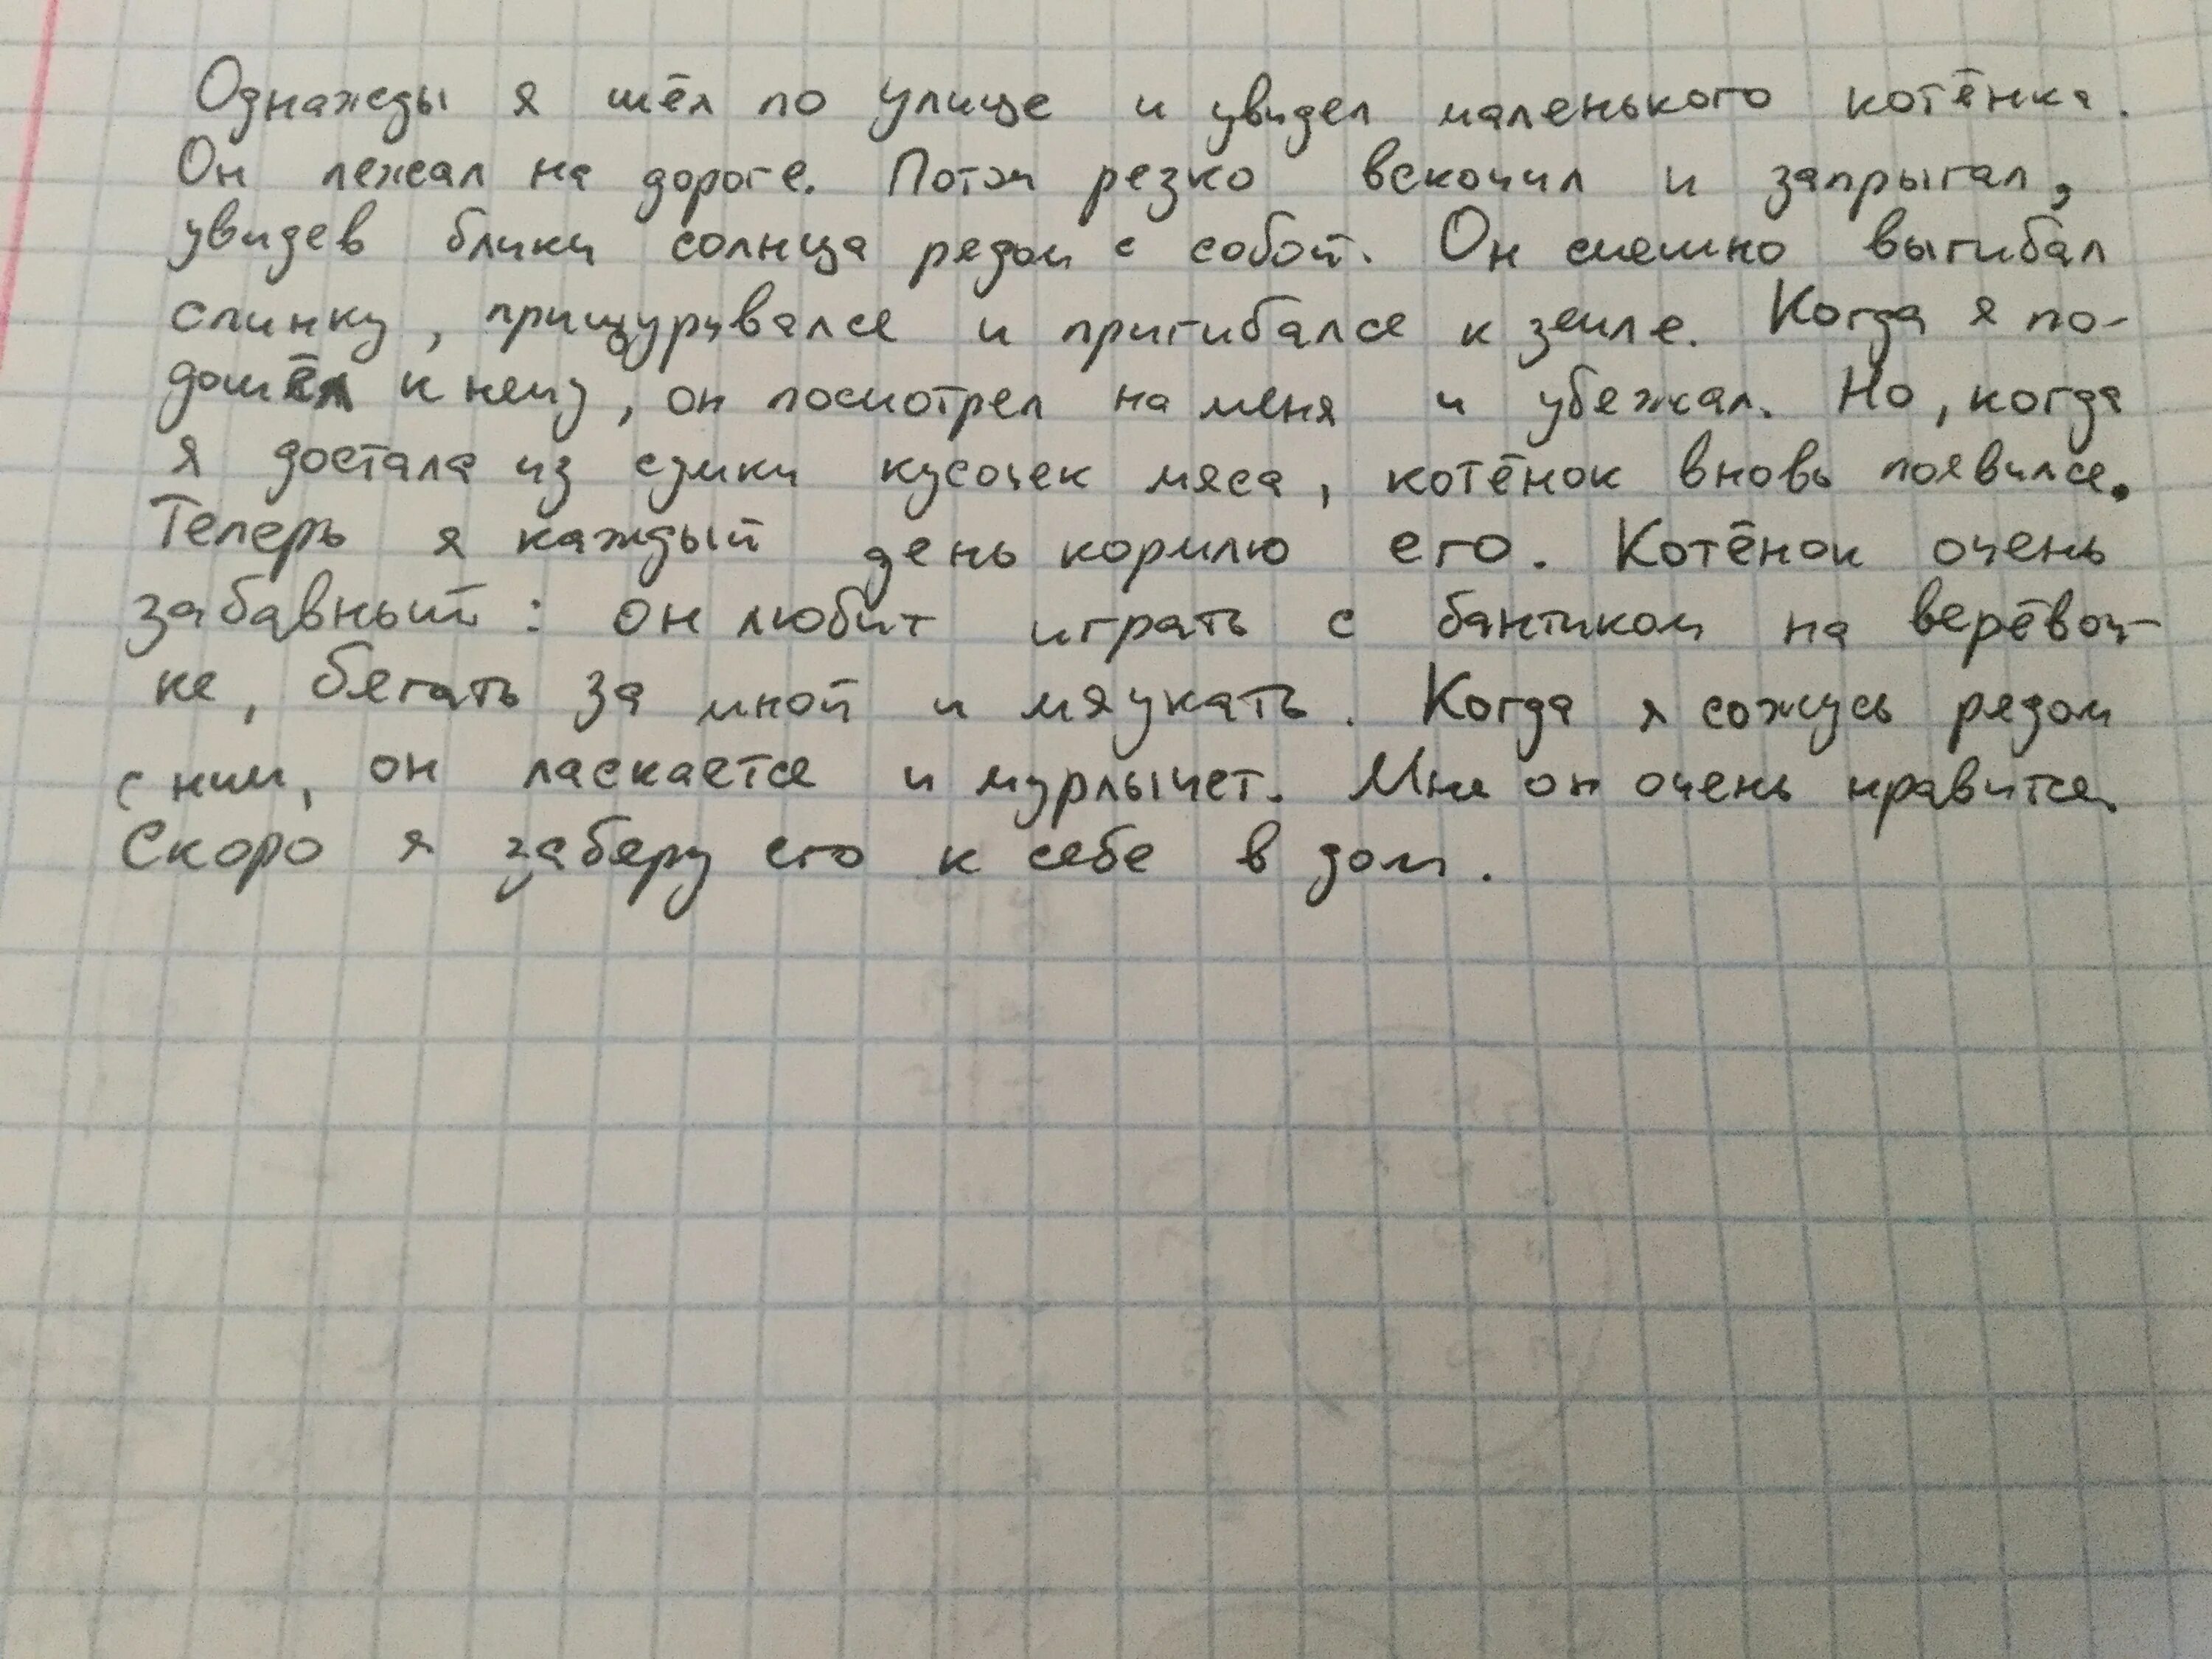 Однажды я шёл по улице и увидел маленького котёнка.
Он лежал на дороге. Потом резко вскочил и запрыгал,
увидев блики солнца рядом с собой. Он смешно выгибал
спинку, прищуривался и пригибался к земле. Когда я по-
дошёл к нему, он посмотрел на меня и убежал. Но, когда
я достала из сумки кусочек мяса, котёнок вновь появился.
Теперь я каждый день кормлю его. Котёнок очень
забавный: он любит играть с бантиком на верёвоч-
ке, бегать за мной и мяукать. Когда я сожусь рядом
с ним, он ласкается и мурлычет. Мне он очень нравится.
Скоро я заберу его к себе в дом.